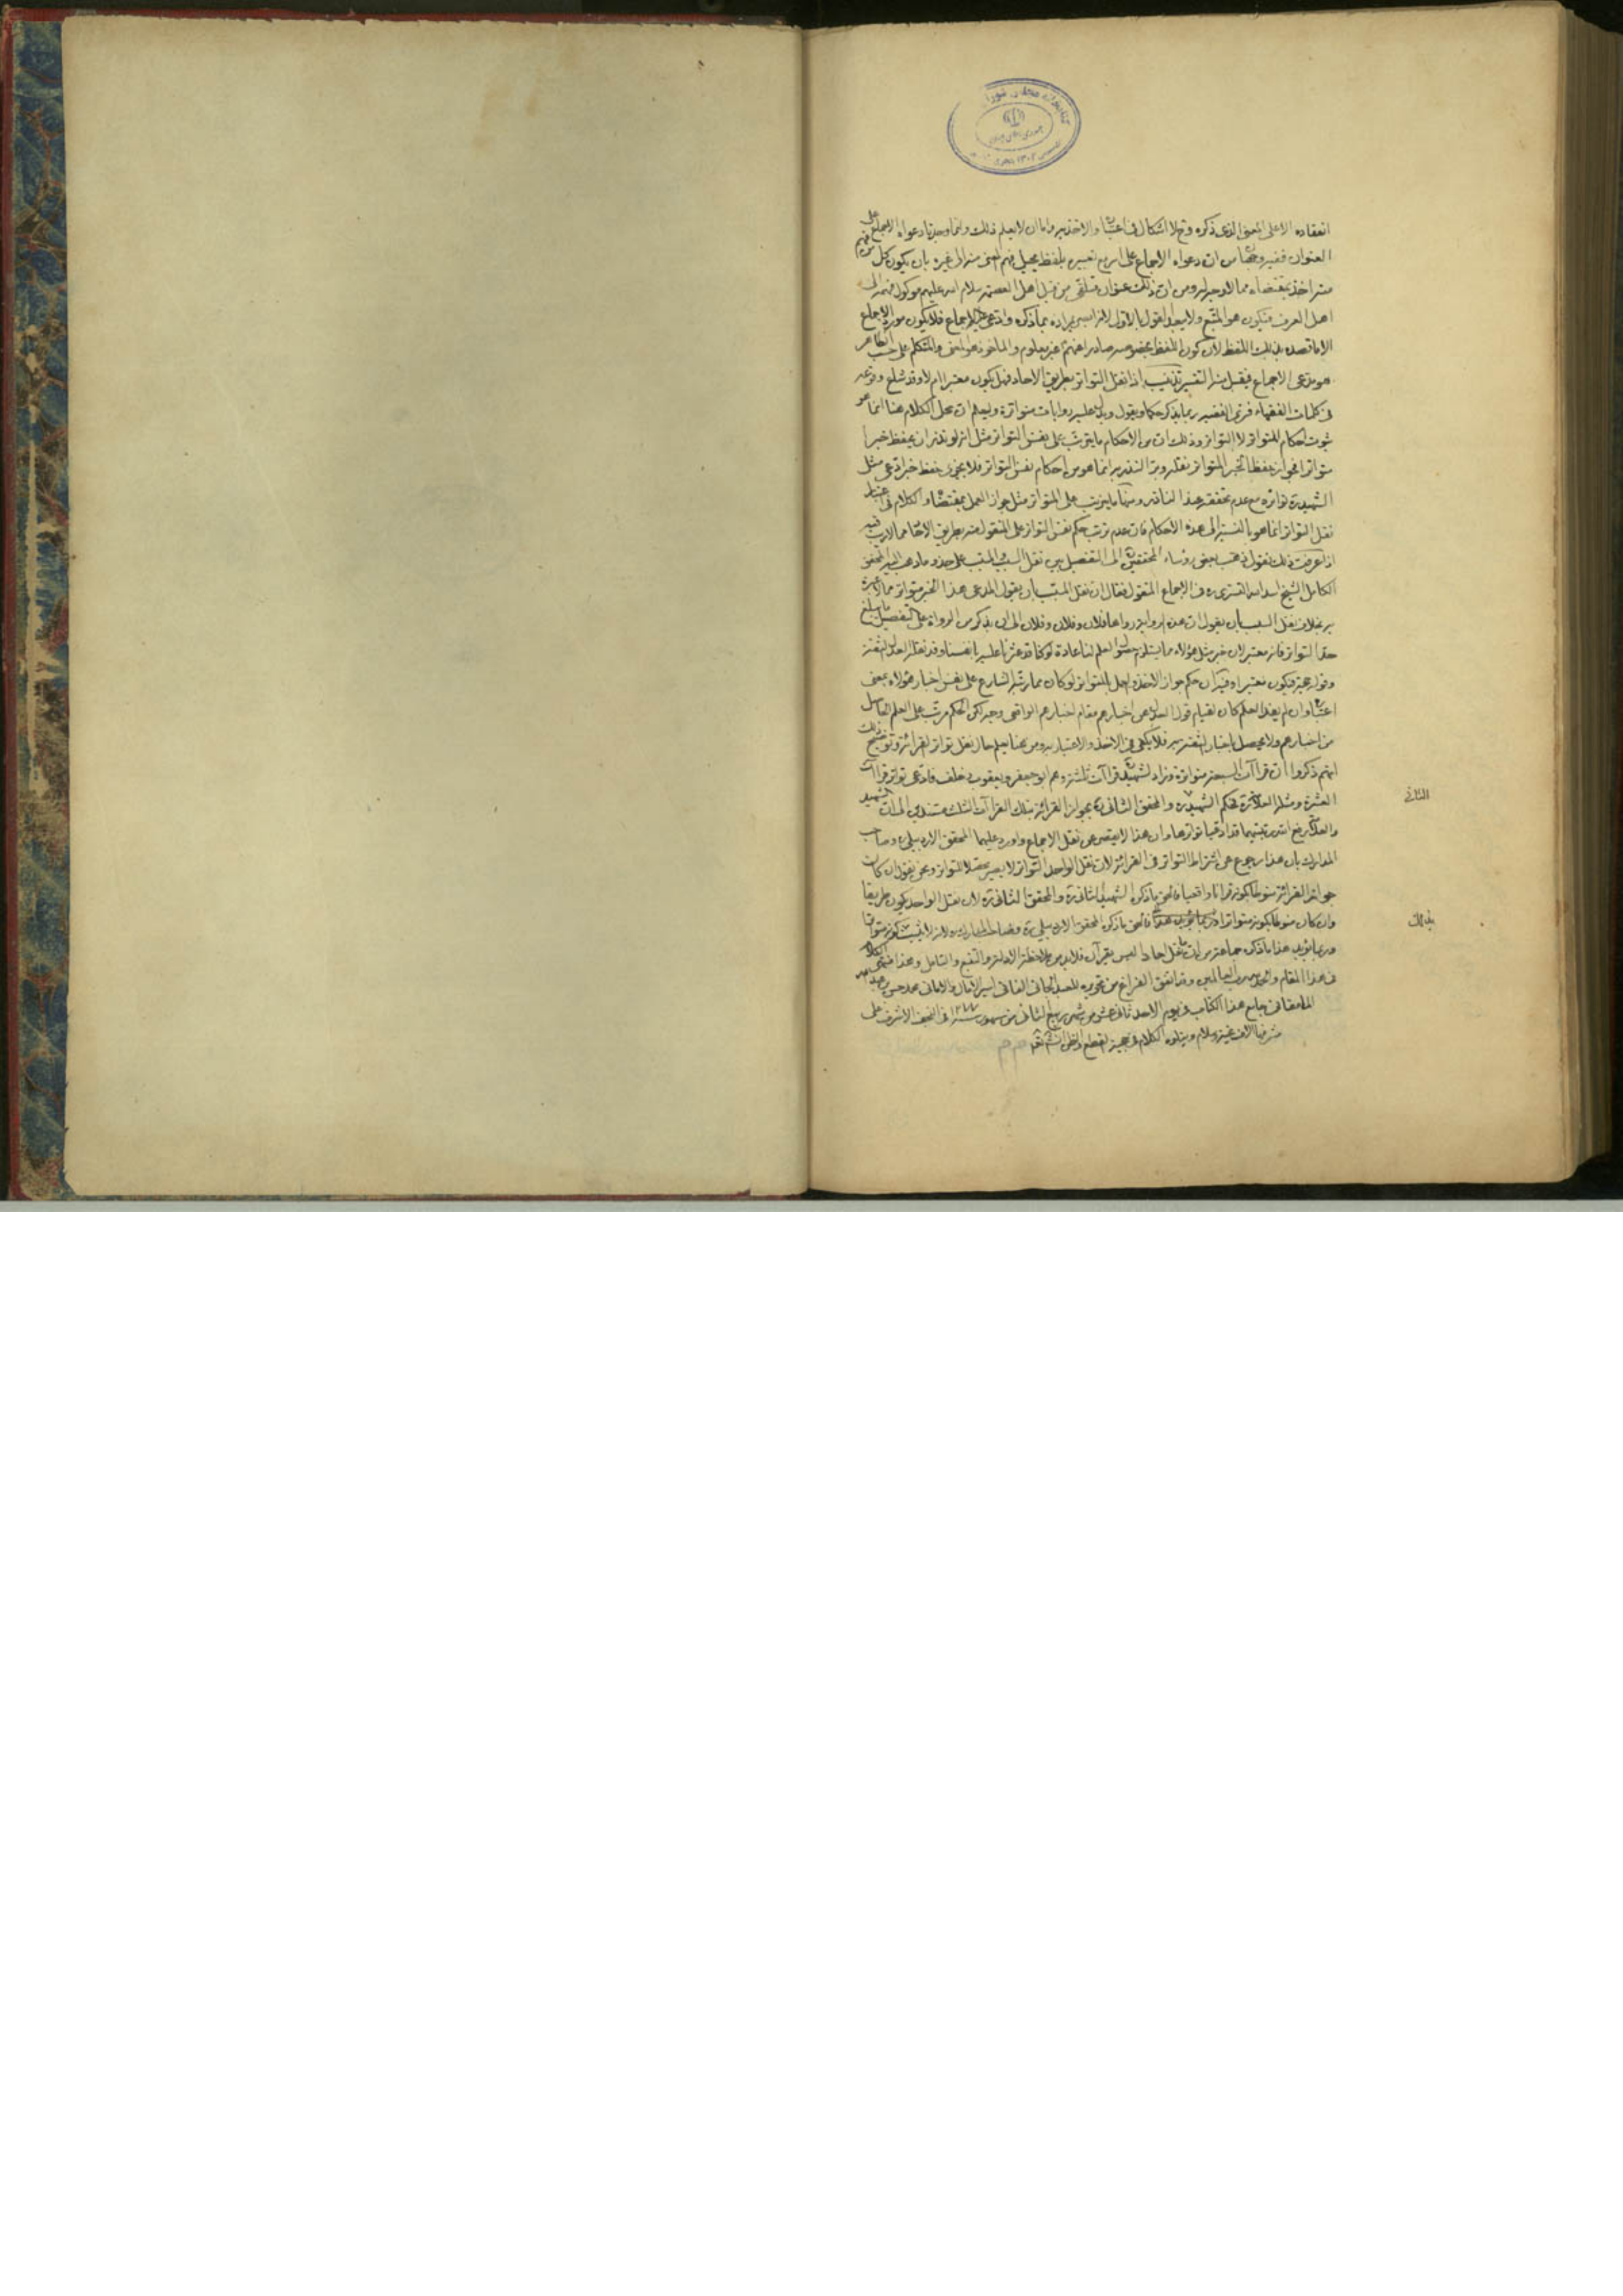 انعقاده الا على المعنى الذى ذكره وح لا اشكال فى اعتباره والاخذ به واما ان لا يعلم ذلك وانما وجدنا دعواه الاجماع على
العنوان ففيه وجهان من ان دعواه الاجماع على امر مع تعبيره بلفظ يحيل فهم المعنى منه الى غيره بان يكون كل من فهم
منه اخذ بمقتضاه مما لا وجه له ومن ان ذلك عنوان متلقى من قبل اهل العصمة سلام الله عليهم موكول فهمه الى
اهل العرف فيكون هو المتبع ولا يبعد القول بالاول لانه مراده بما ذكره وادعى عليه الاجماع فلا يكون مورد الاجماع
الا ما قصده بذلك اللفظ لان كون اللفظ بخصوصه صادرا عنهم غير معلوم والماخوذ هو المعنى والمتكلم على حسب الظاهر
هو مدعى الاجماع فيقبل منه التفسير تذنيب اذا نقل التواتر بطريق الاحاد فهل يكون معتبرا ام لا وقد شاع وقوعه
فى كلمات الفقهاء فترى الفقيه ربما يذكر حكما ويقول ويدل عليه روايات متواترة وليعلم ان محل الكلام هنا انما هو
ثبوت احكام المتواتر لا التواتر وذلك ان من الاحكام ما يترتب على نفس التواتر مثل انه لو نذر ان يحفظ خبرا
متواترا فجواز حفظ الخبر المتواتر نقله وبرّ النذر به انما هو من احكام نفس التواتر فلا يجزى حفظ خبر ادعى مثل
الشهيد ره تواتره مع عدم تحققه عند الناذر ومنها ما يترتب على المتواتر مثل جواز العمل بمقتضاه والكلام فى اعتبار
نقل التواتر انما هو بالنسبة الى هذه الاحكام فان عدم ترتب حكم نفس التواتر على المنقول منه بطريق الاحاد مما لا ريب فيه
اذا عرفت ذلك فنقول ذهب بعض رؤساء المحققين الى التفصيل بين نقل السبب والمسبب على حذو ما ذهب اليه المحقق
الكامل الشيخ اسد الله التسترى ره فى الاجماع المنقول فقال ان نقل المسبب بان يقول المدعى هذا الخبر متواتر مما لا عبرة
به بخلاف نقل السبب بان يقول ان هذه الرواية رواها فلان وفلان وفلان الى ان يذكر من الرواة على التفصيل ما يبلغ
حد التواتر فانه معتبر لان خبر مثل هؤلاء مما يستلزم حصول العلم لنا عادة لو كنا قد عثرنا عليه بانفسنا وقد نقله العدل الثقة
وقوله حجة فيكون معتبرا وفيه ان حكم جواز الاخذ والعمل بالمتواتر لو كان مما رتبه الشارع على نفس اخبار هؤلاء بمعنى
اعتباره وان لم يفد العلم كان لقيام قول العدل عن اخبارهم مقام اخبارهم الواقعى وجه لكن الحكم مرتب على العلم الحاصل
من اخبارهم ولا يحصل باخبار الثقة به فلا يكفى فى الاخذ والاعتبار به ومن هنا يعلم حال نقل تواتر القرائة وتوضيح ذلك
انهم ذكروا ان قراآت السبعة متواترة وزاد الشهيد قراآت ثلثة وهم ابو جعفر ويعقوب وخلف فادعى تواتر قراآت
العشرة ومثله العلامة ره فحكم الشهيد ره والمحقق الثانى ره بجواز القرائة بتلك القراآت الثلث مستندين الى ان الشهيد
الثانى
والعلامة رفع الله رتبتهما قد ادعيا تواترها وان هذا لا يقصر عن نقل الاجماع واورد عليهما المحقق الاردبيلى ره وصاحب
المدارك بان هذا رجوع عن اشتراط التواتر فى القرائة لان نقل الواحد التواتر لا يصير محصلا للمتواتر ونحن نقول ان كان
جواز القرائة منوطا بكونه قرانا واقعيا فالحق ما ذكره الشهيد الثانى ره والمحقق الثانى ره لان نقل الواحد يكون طريقا
بذلك
وان كان منوطا بكونه متواترا فالحق ما ذكره المحقق الاردبيلى ره وصاحب المدارك ره لانه لا يثبت كونه متواترا
وربما يؤيد هذا ما ذكره جماعة من ان ما نقل احادا ليس بقرآن فلا بد من ملاحظة الادلة والتتبع والتامل وهذا منتهى الكلام
فى هذا المقام والحمد لله رب العالمين وقد اتفق الفراغ من تحريره للعبد الجانى الفانى اسير الامال والامانى محمد حسن بن عبد الله
المامقانى جامع هذا الكتاب فى يوم الاحد ثانى عشر من شهر ربيع الثانى من شهور سنة ١٢٧٧ فى النجف الاشرف على
مشرفها الاف تحية وسلام ويتلوه الكلام فى حجية القطع والظن انشاء الله تعالى